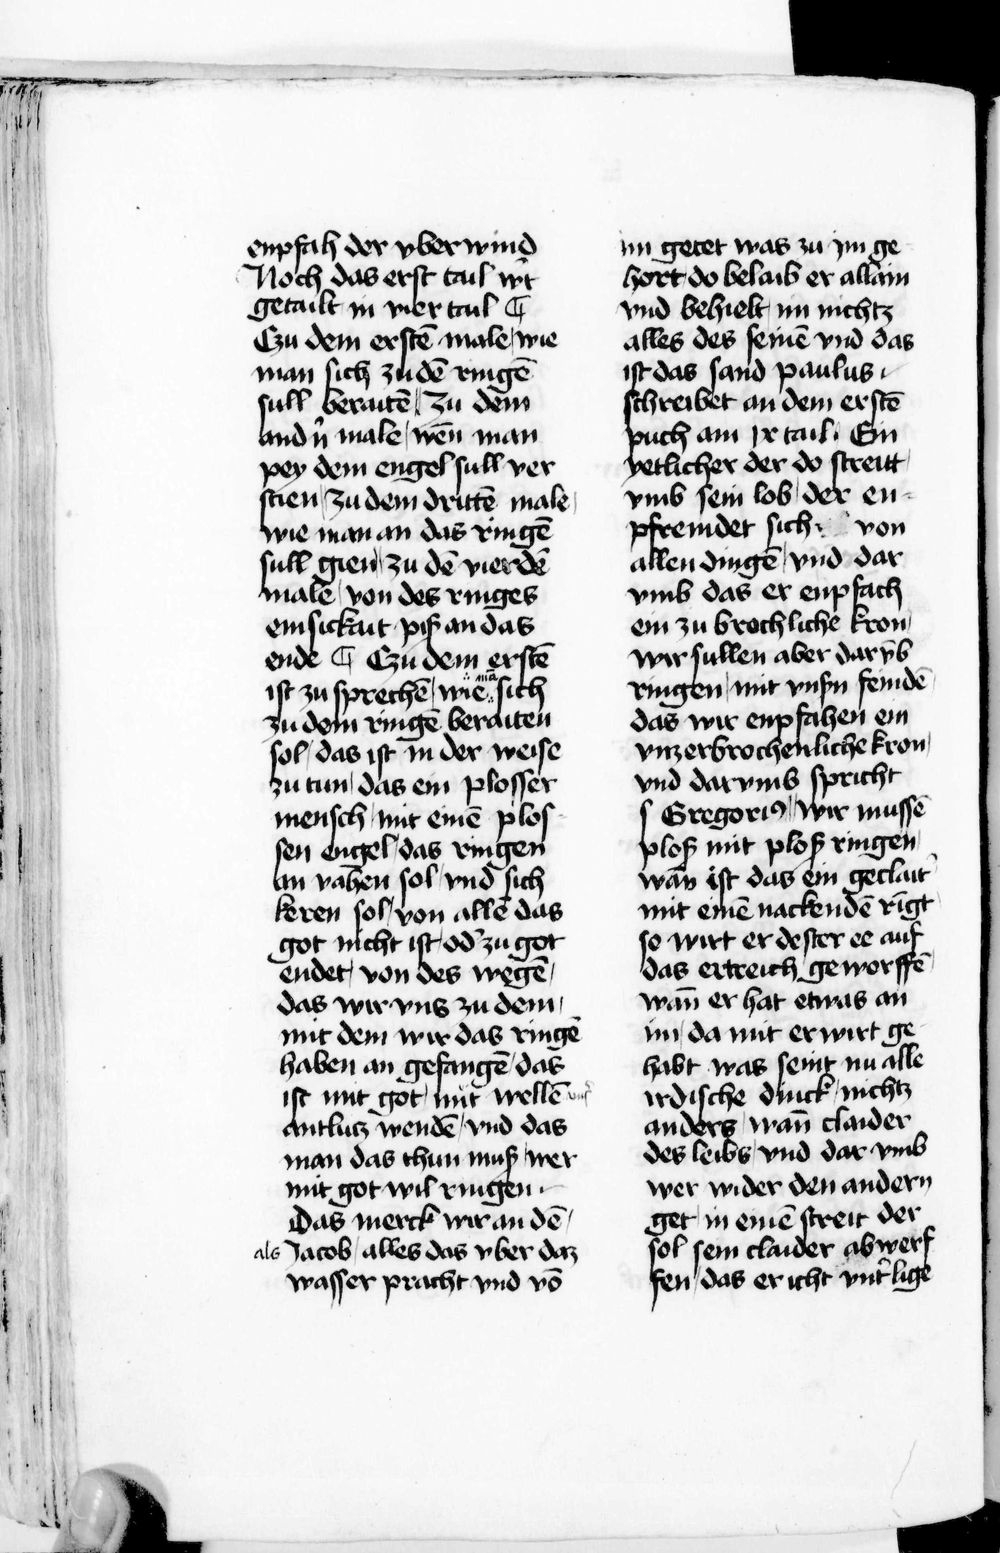 enpfah der vberwind
Noch das erst tail wt̾
getailt in vier tail ¶
Czu dem erstē male / wie
man sich zu dē ringē
sull beraitē / Zu dem
and̾n male / wēn man
pey dem engel sull ver
stien / Zu dem drittē male /
wie man an das ringē
sull gien / zu dē vierdē
male / von des ringes
emsickait piß an das
ende ¶ Czu dem erstē
ist zu sprechē / wie mā sich
zu dem ringē beraiten
sol / das ist in der weise
zu tun / das ein plosser
mensch / mit einē plos-
sen engel / das ringen
an vahen sol / vnd sich
keren sol / von allē das
got nicht ist / od̾ zu got
endet / von des wegē /
das wir vns zu dem /
mit dem wir das ringē
haben an gefangē / das
ist mit got / mit wellē vns̾
antlutz wendē / vnd das
man das thun muß / wer
mit got wil ringen ·
Das merck wir an dē /
als Jacob / alles das vber daz
wasser pracht vnd vō
im getet was zu jm ge-
hort do belaib er allain
vnd behielt im nichtz
alles des seinē vnd das
ist das sand paulus ·
schreibet an dem erstē
puch am jx tail · Ein
yetlicher der do streitt /
vmb sein lob / der en-
pfremdet sich · von
allen dingē / vnd dar
vmb das er enpfach
ein zu brochliche kron /
wir sullen aber darv̄b
ringen / mit vnsn̾ feindē /
das wir enpfahen ein
vnzerbrochenliche kron /
vnd darvmb spricht
s Gregoriꝰ / wir mussē
ploß mit ploß ringen /
wān ist das ein geclait̾
mit einē nackendē rīgt
so wirt er dester ee auf
das ertreich geworffē /
wan̄ er hat etwas an
im / da mit er wirt ge-
habt was seint nu alle
irdische dinck / nichtz
anders / wan̄ claider
des leibs / vnd dar vmb
wer wider den andern
get / in einē streit der
sol sein claider abwerf
fen / das er icht vnt̾lige